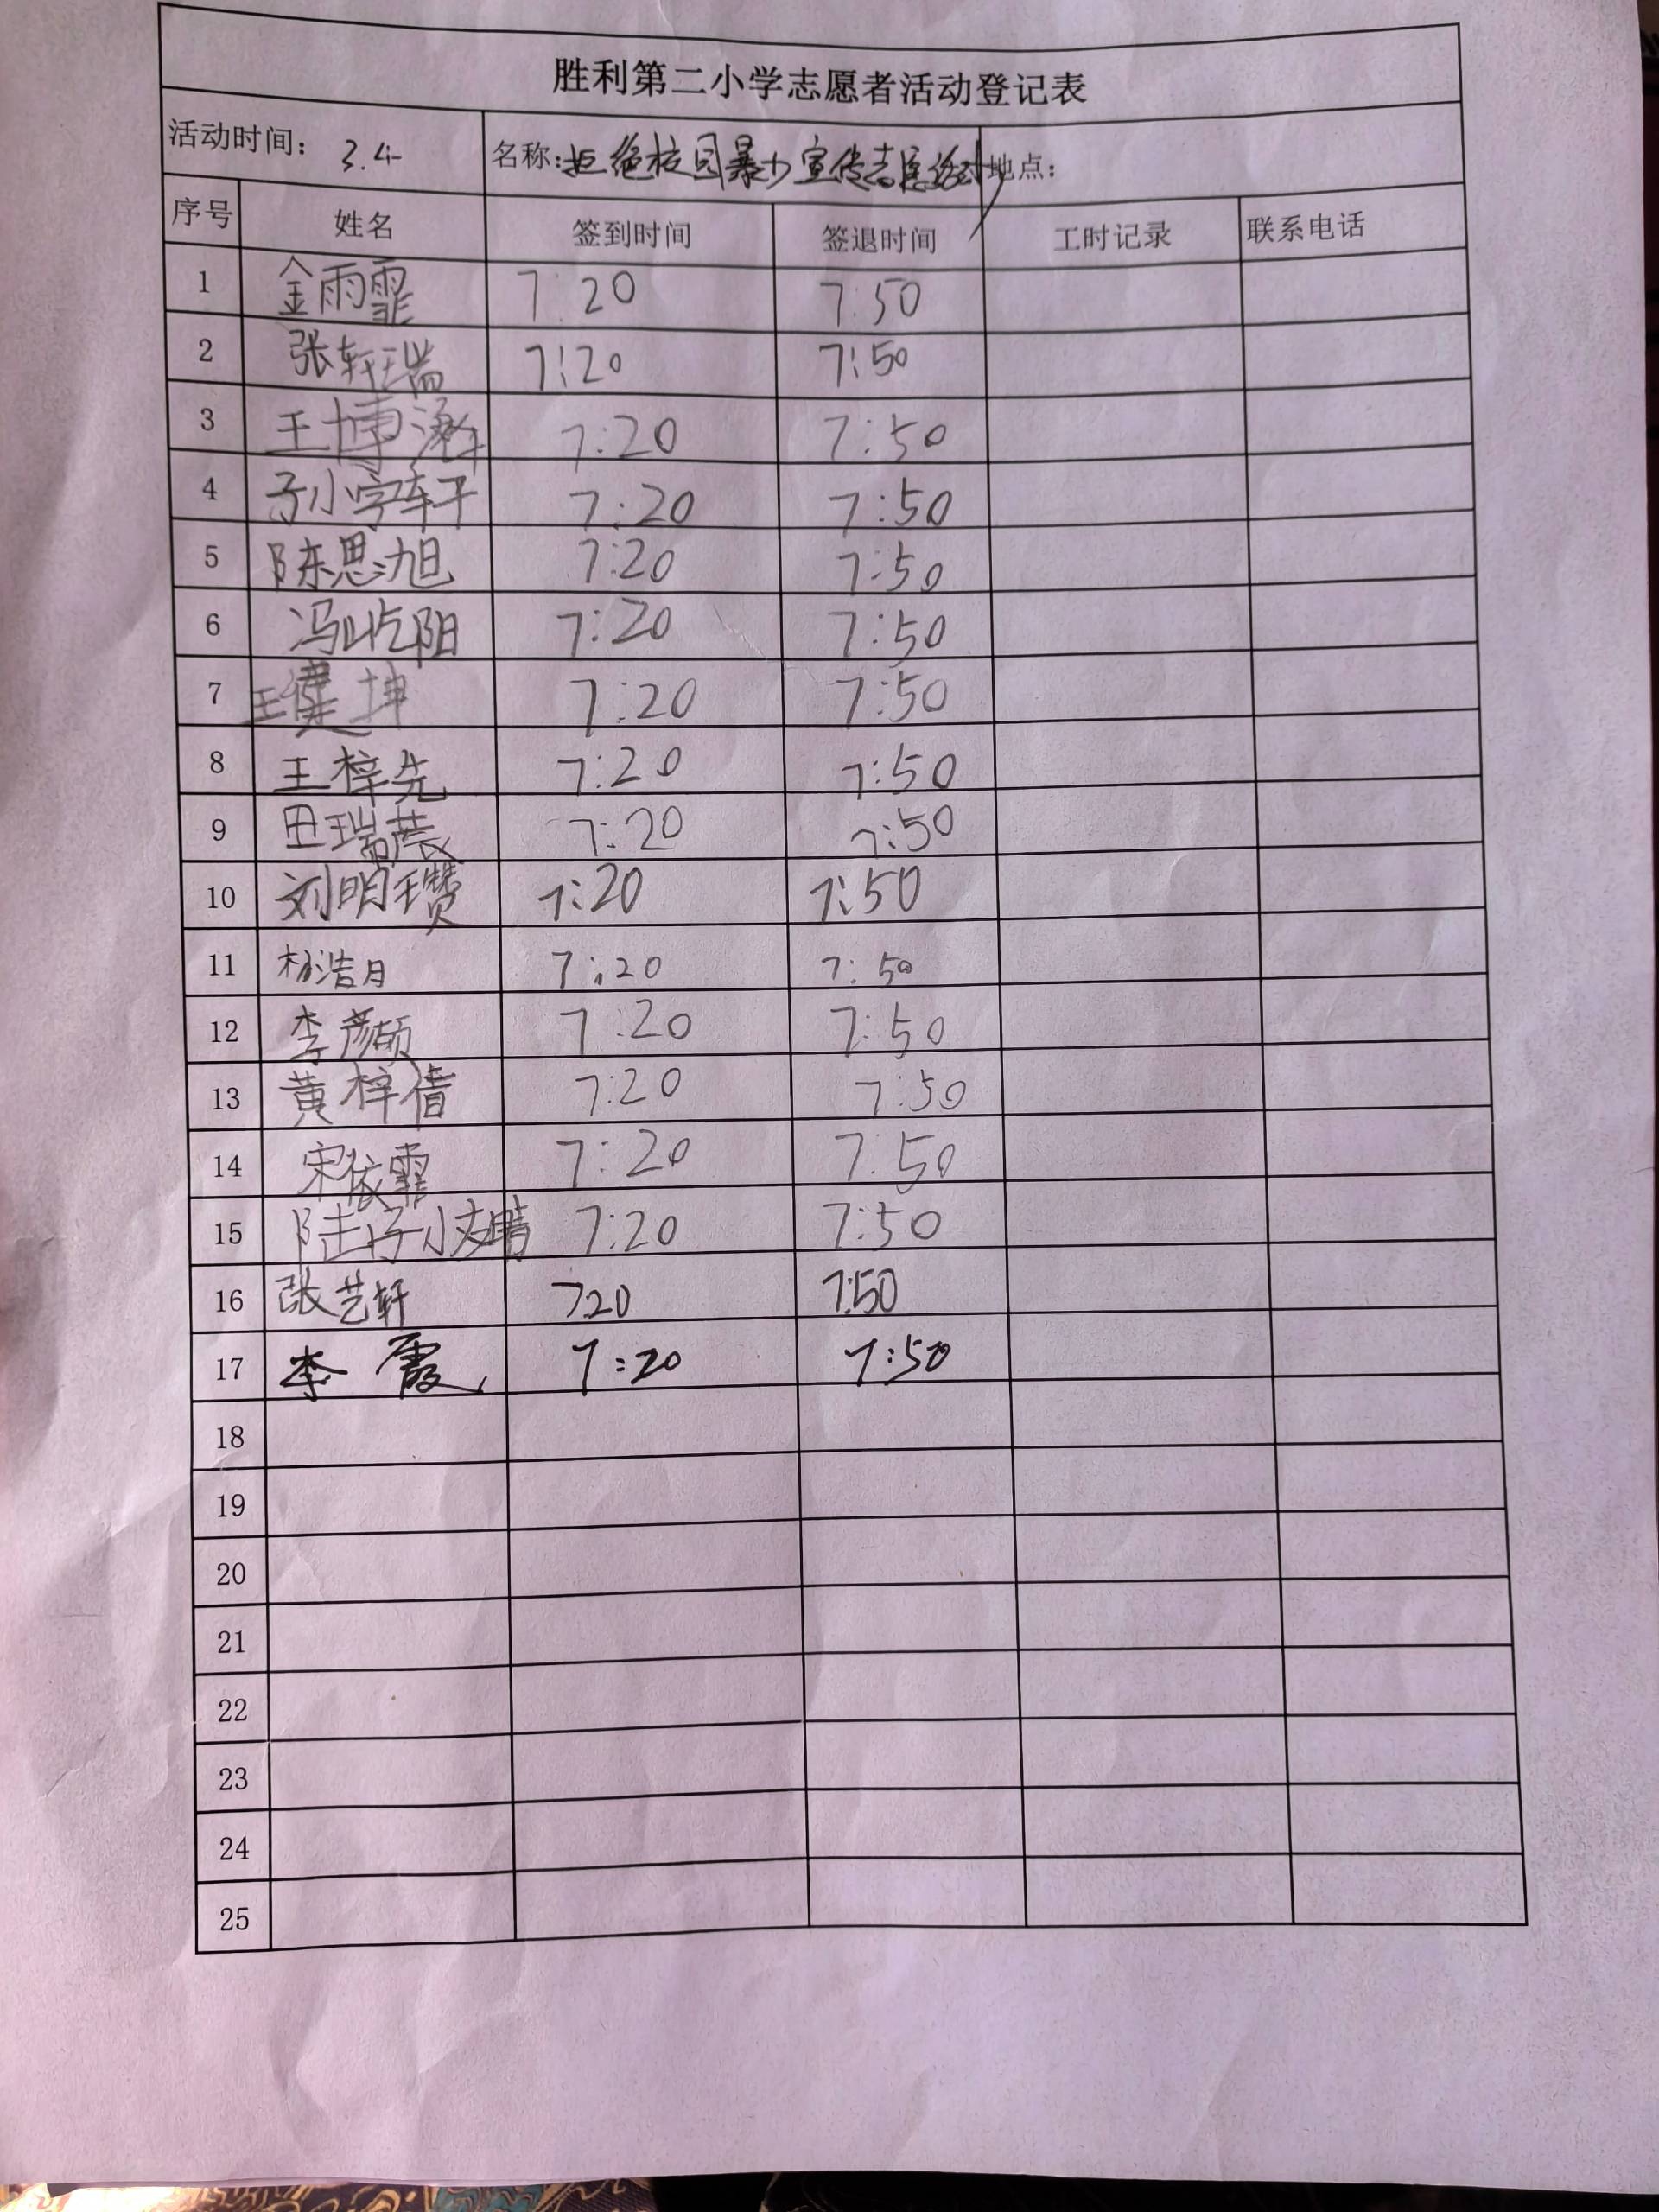 胜利第二小学志愿者活动登记表
活动时间： 3.4 名称：拒绝校园暴力宣传志愿活动 地点：
序号 姓名 签到时间 签退时间 工时记录 联系电话
1 金雨霏 7:20 7:50
2 张轩瑞 7:20 7:50
3 王博 7:20 7:50
4 孙宇轩 7:20 7:50
5 陈思旭 7:20 7:50
6 冯屹阳 7:20 7:50
7 王健坤 7:20 7:50
8 王梓先 7:20 7:50
9 田瑞 7:20 7:50
10 刘明瓒 7:20 7:50
11 杨浩月 7:20 7:50
12 李彦颀 7:20 7:50
13 黄梓倩 7:20 7:50
14 宋依霏 7:20 7:50
15 陆 晴 7:20 7:50
16 张艺轩 7:20 7:50
17 李霞 7:20 7:50
18
19
20
21
22
23
24
25